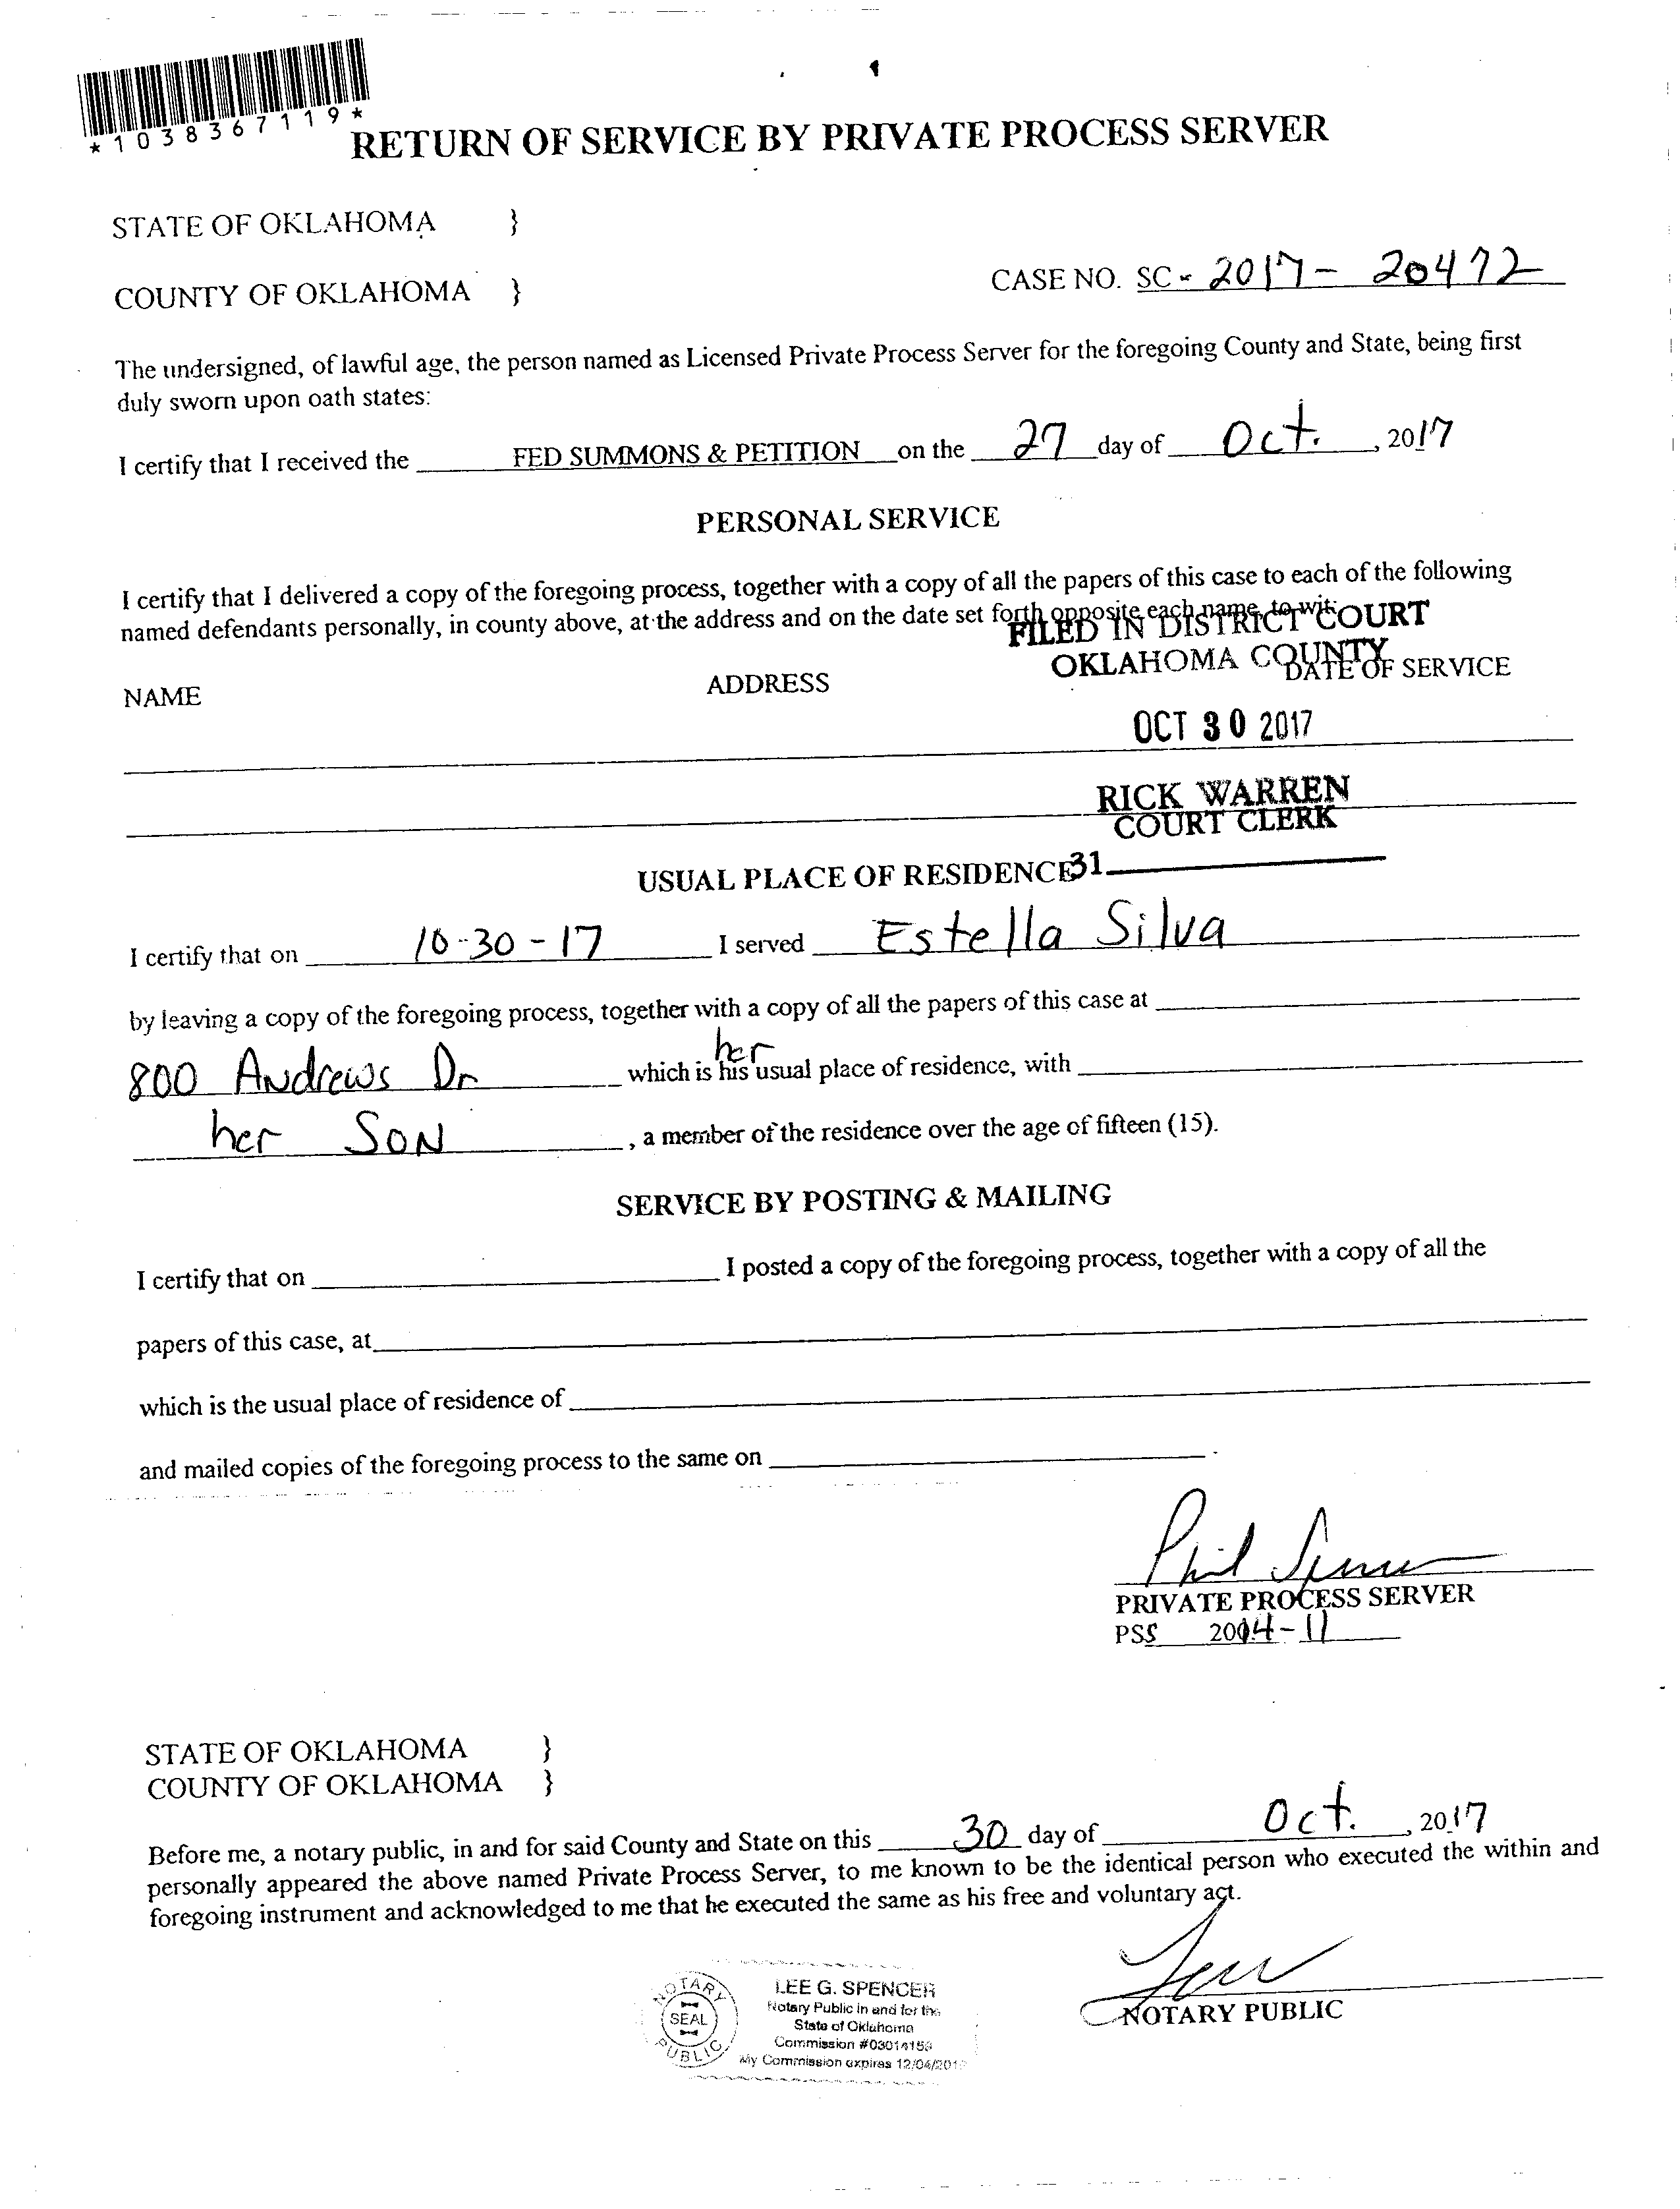 *1038367119*
RETURN OF SERVICE BY PRIVATE PROCESS SERVER
STATE OF OKLAHOMA }
COUNTY OF OKLAHOMA } CASE NO. SC - 2017 - 20472
The undersigned, of lawful age, the person named as Licensed Private Process Server for the foregoing County and State, being first
duly sworn upon oath states:
I certify that I received the FED SUMMONS & PETITION on the 27 day of Oct. , 2017
PERSONAL SERVICE
I certify that I delivered a copy of the foregoing process, together with a copy of all the papers of this case to each of the following
named defendants personally, in county above, at the address and on the date set forth opposite each name, to wit:
FILED IN DISTRICT COURT
OKLAHOMA COUNTY
NAME ADDRESS DATE OF SERVICE
OCT 30 2017
RICK WARREN
COURT CLERK
31
USUAL PLACE OF RESIDENCE
I certify that on 10-30-17 I served Estella Silva
by leaving a copy of the foregoing process, together with a copy of all the papers of this case at
her
800 Andrews Dr which is his usual place of residence, with
her SON , a member of the residence over the age of fifteen (15).
SERVICE BY POSTING & MAILING
I certify that on I posted a copy of the foregoing process, together with a copy of all the
papers of this case, at
which is the usual place of residence of
and mailed copies of the foregoing process to the same on .
Phil
PRIVATE PROCESS SERVER
PSS 2004-11
STATE OF OKLAHOMA }
COUNTY OF OKLAHOMA }
Before me, a notary public, in and for said County and State on this 30 day of Oct. , 2017
personally appeared the above named Private Process Server, to me known to be the identical person who executed the within and
foregoing instrument and acknowledged to me that he executed the same as his free and voluntary act.
NOTARY PUBLIC
NOTARY
SEAL
PUBLIC
LEE G. SPENCER
Notary Public in and for the
State of Oklahoma
Commission #
My Commission expires